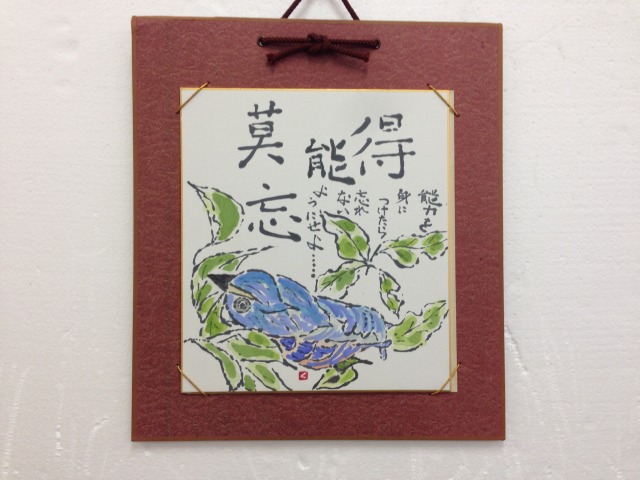 得能
莫忘
能力を
身に
つけたら
忘れ
ない
ようにせよ……